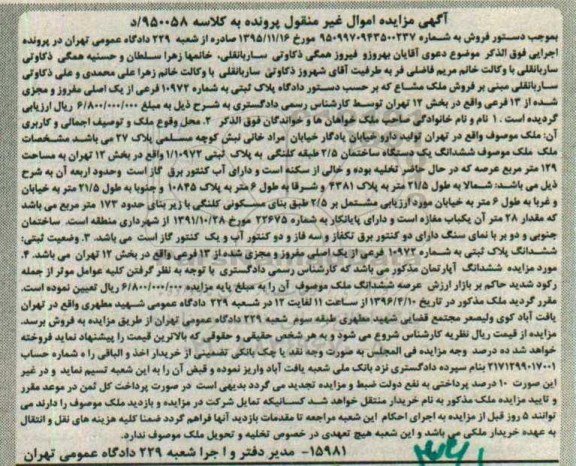 آگهی مزایده اموال غیر منقول پرونده به کلاسه ۹۵۰۰۵۸/د
بموجب دستور فروش به شماره ۹۵۰۹۹۷۰۹۴۳۵۰۰۲۳۷ مورخ ۱۳۹۵/۱۱/۱۶ صادره از شعبه ۲۲۹ دادگاه عمومی تهران در پرونده
اجرایی فوق الذکر موضوع دعوی آقایان بهروزو فیروز همگی ذکاوتی ساربانقلی، خانمها زهرا سلطان و حسنیه همگی ذکاوتی
ساربانقلی با وکالت خانم مریم فاضلی فر به طرفیت آقای شهروز ذکاوتی ساربانقلی با وکالت خانم زهرا علی محمدی و علی ذکاوتی
ساربانقلی مبنی بر فروش ملک مشاعی که بر حسب دستور دادگاه پلاک ثبتی به شماره ۱۰۹۷۲ فرعی از یک اصلی مفروز و مجزی
شده از ۱۳ فرعی واقع در بخش ۱۲ تهران توسط کارشناس رسمی دادگستری به شرح ذیل به مبلغ ۶/۸۰۰/۰۰۰/۰۰۰ ریال ارزیابی
گردیده است. ۱ نام و نام خانوادگی صاحب ملک خواهان ها و خواندگان فوق الذکر ۲. محل وقوع ملک و توصیف اجمالی و کاربری
آن: ملک موصوف واقع در تهران تولید دارو خیابان یادگار خیابان مراد خانی نبش کوچه مسلمی پلاک ۲۷ می باشد مشخصات
ملک ملک موصوف ششدانگ یک دستگاه ساختمان ۲/۵ طبقه کلنگی به پلاک ثبتی ۱/۱۰۹۷۲ واقع در بخش ۱۲ تهران به مساحت
۱۲۹ متر مربع عرصه که در حال حاضر تخلیه بوده و خالی از سکنه است و دارای آب کنتور برق گاز است وحدود اربعه آن به شرح
ذیل می باشد: شمالا به طول ۲۱/۵ متر به پلاک ۴۳۸۱ و شرقا به طول ۶ متر به پلاک ۱۰۸۴۵ و جنوبا به طول ۲۱/۵ متر به خیابان
و غربا به طول ۶ متر به خیابان مورد ارزیابی مشتمل بر ۲/۵ طبق بنای مسکونی کلنگی با زیر بنای حدود ۱۷۳ متر مربع می باشد
که مقدار ۲۸ متر آن یکباب مغازه است و دارای پایانکار به شماره ۲۲۶۷۵ مورخ ۱۳۹۱/۱۰/۲۸ از شهرداری منطقه است. ساختمان
جنوبی و دو بر با نمای سنگ دارای دو کنتور برق تکفاز و سه فاز و دو کنتور آب و یک کنتور گاز است می باشد. ۳. وضعیت ثبتی:
ششدانگ پلاک ثبتی به شماره ۱۰۹۷۲ فرعی از یک اصلی مفروز و مجزی شده از ۱۳ فرعی واقع در بخش ۱۲ تهران می باشد. ۴.
مورد مزایده ششدانگ آپارتمان مذکور می باشد که کارشناس رسمی دادگستری با توجه به نظر گرفتن کلیه عوامل موثر از جمله
رکود شدید حاکم بر بازار ارزش عرصه ششدانگ ملک موصوف آن را به مبلغ پایه مزایده ۶/۸۰۰/۰۰۰/۰۰۰ ریال تعیین نموده است.
مقرر گردید ملک مذکور در تاریخ ۱۳۹۶/۴/۱۰ از ساعت ۱۱ لغایت ۱۲ در شعبه ۲۲۹ دادگاه عمومی شهید مطهری واقع در تهران
یافت آباد کوی ولیعصر مجتمع قضایی شهید مطهری طبقه سوم شعبه ۲۲۹ دادگاه عمومی تهران از طریق مزایده به فروش برسد.
مزایده از قیمت ریال نظریه کارشناس شروع می شود و به هر شخص حقیقی و حقوقی که بالاترین قیمت را پیشنهاد نماید فروخته
خواهد شد ده درصد وجه مزایده فی المجلس به صورت وجه نقد یا چک بانکی تضمینی از خریدار اخذ و الباقی را ه شماره حساب
۲۱۷۱۲۹۹۰۱۷۰۰۱ بنام سپرده دادگستری نزد بانک ملی شعبه یافت آباد واریز نموده و قبض آن را به این شعبه تسیم نماید و در غیر
این صورت ۱۰ درصد پرداختی به نفع دولت ضبط و مزایده تجدید می گردد بدیهی است در صورت پرداخت کل ثمن در موعد مقرر
و تایید مزایده ملک مذکور به نام خریدار منتقل خواهد شد کسانیکه تمایل شرکت در مزایده و بازدید ملک موصوف را دارند می
توانند ۵ روز قبل از مزایده به اجرای احکام این شعبه مراجعه تا مقدمات بازدید آنها فراهم گردد ضمنا کلیه هزینه های نقل و انتقال
به عهده خریدار ملکی می باشد و این شعبه هیچ تعهدی در خصوص تخلیه و تحویل ملک موصوف ندارد.
۱۵۹۸۱- مدیر دفتر و اجرا شعبه ۲۲۹ دادگاه عمومی تهران